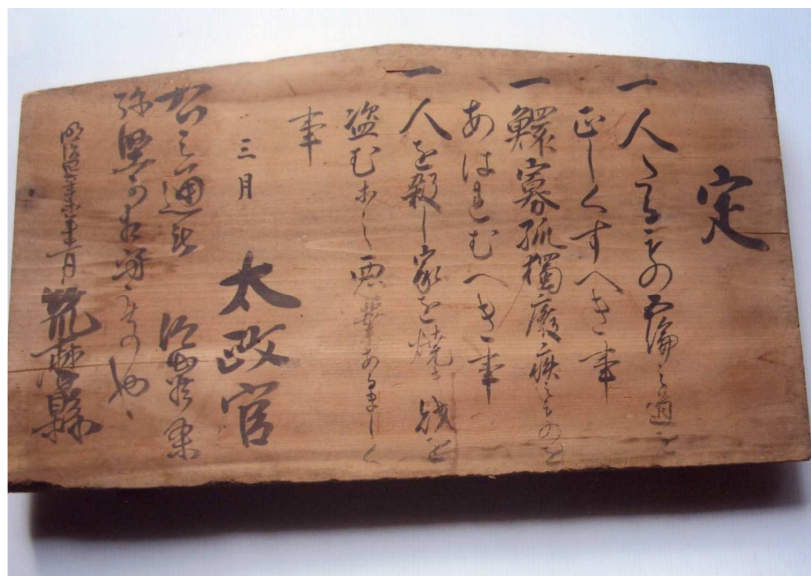 定
一人たるもの五倫之道を
正しくすへき事
一鰥寡孤獨癈疾之ものを
あはれむへき事
一人を殺し家を焼き財を
盗む等之悪業あるましく
事
三月 太政官
右之通被 仰出候条
弥堅可相守もの也
明治 月 縣